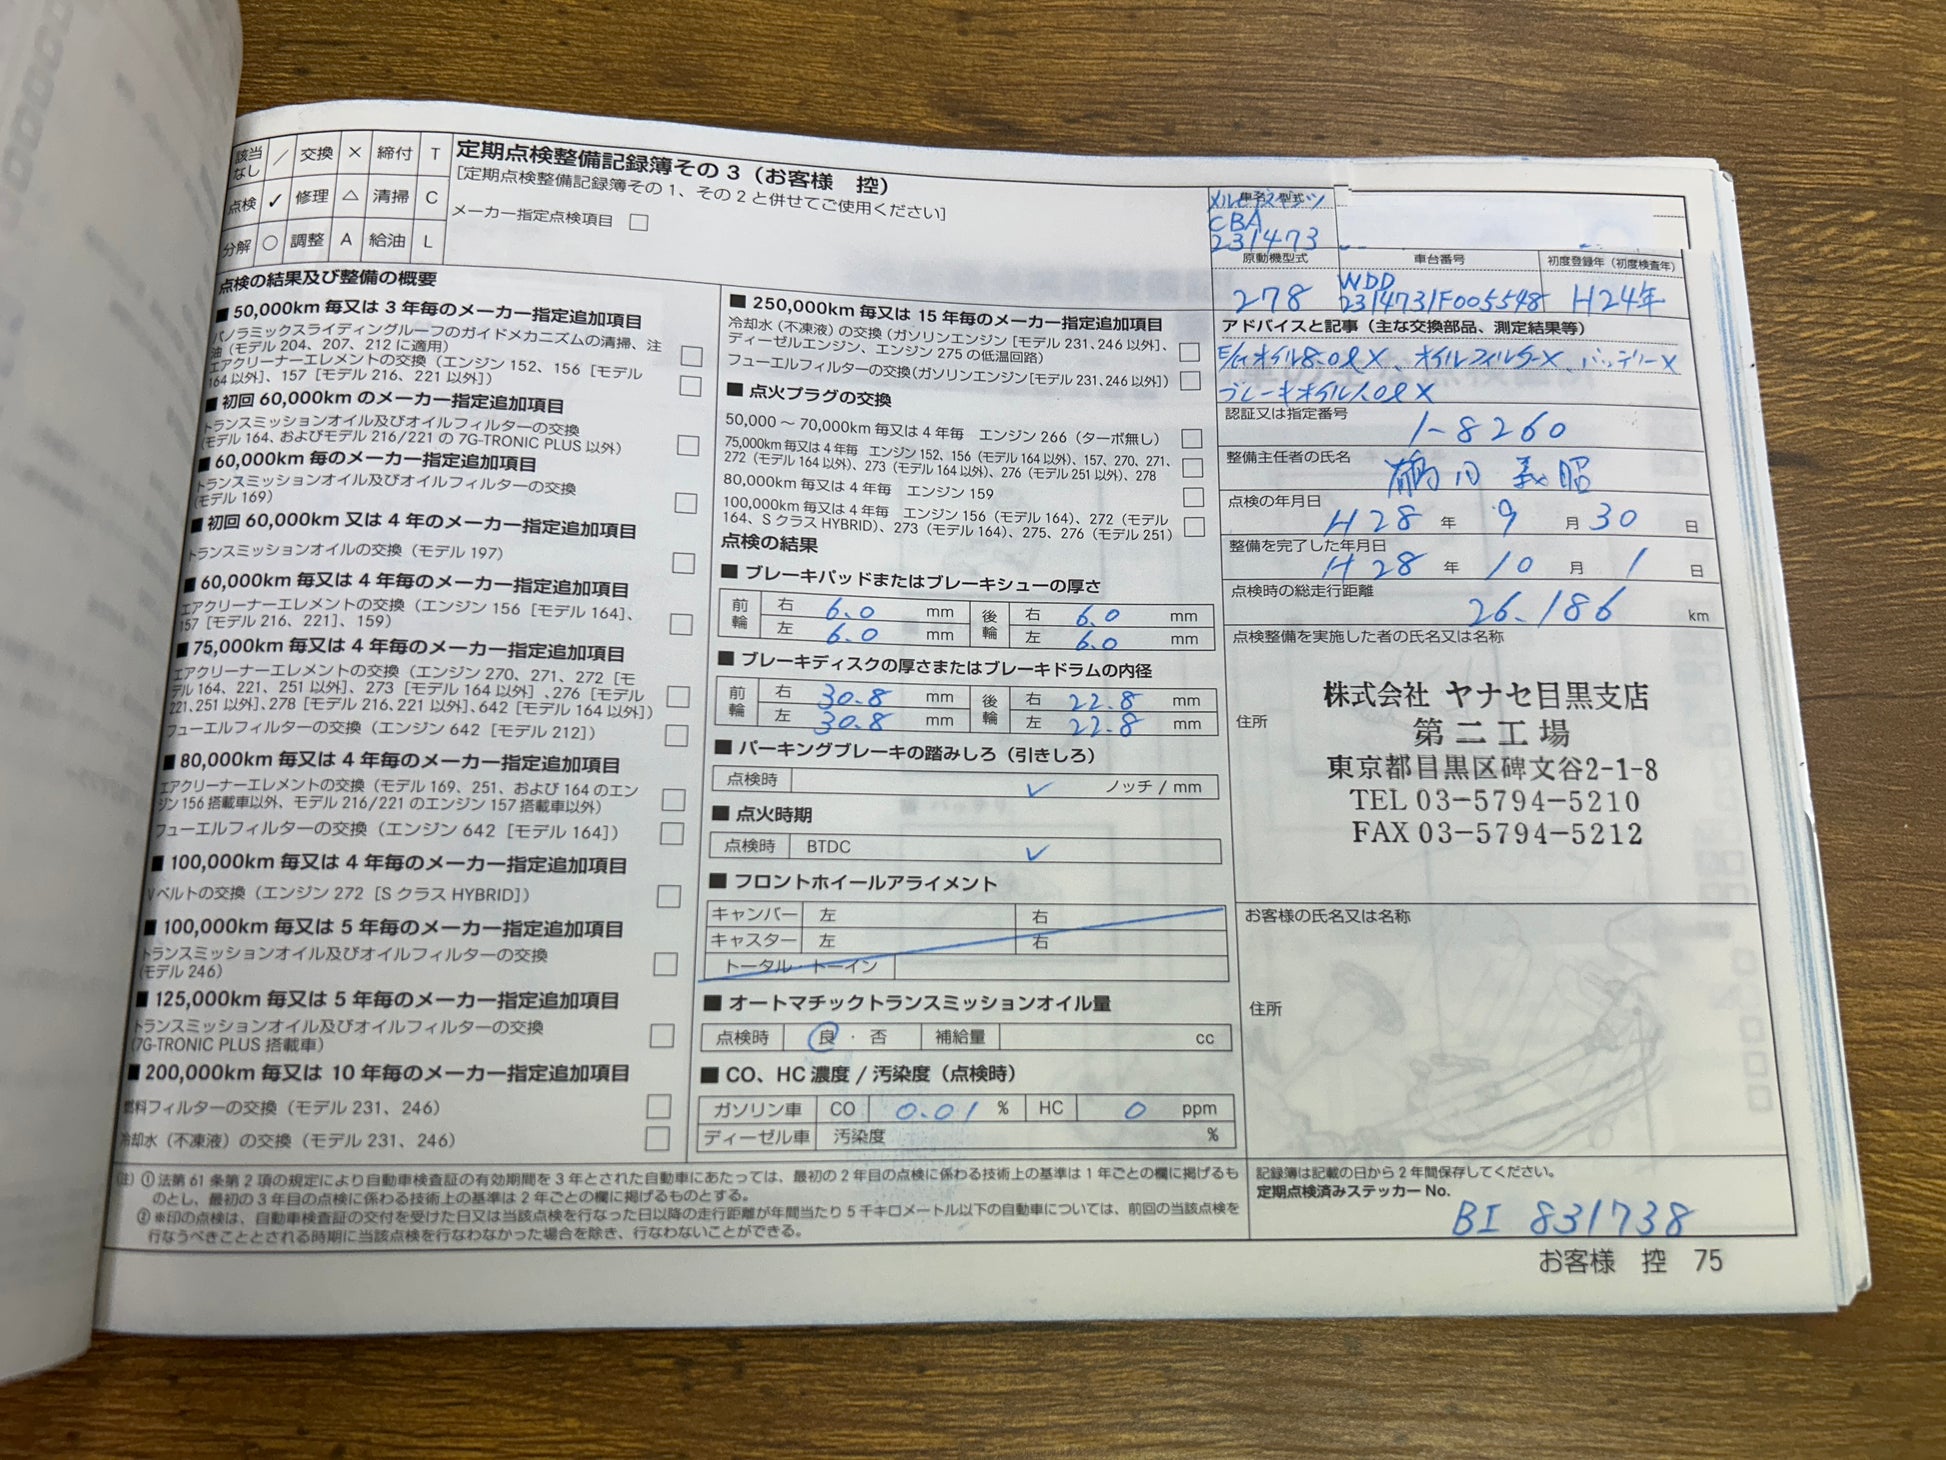 該当なし ／ 交換 × 締付 T
点検 ✓ 修理 △ 清掃 C
分解 ○ 調整 A 給油 L
定期点検整備記録簿その3（お客様 控）
[定期点検整備記録簿その1、その2と併せてご使用ください]
メーカー指定点検項目 □
点検の結果及び整備の概要
■ 50,000km 毎又は 3 年毎のメーカー指定追加項目
パノラミックスライディングルーフのガイドメカニズムの清掃、注
油（モデル 204、207、212 に適用） □
エアクリーナーエレメントの交換（エンジン 152、156［モデル
164 以外］、157［モデル 216、221 以外］） □
■ 初回 60,000km のメーカー指定追加項目
トランスミッションオイル及びオイルフィルターの交換
（モデル 164、およびモデル 216/221 の 7G-TRONIC PLUS 以外） □
■ 60,000km 毎のメーカー指定追加項目
トランスミッションオイル及びオイルフィルターの交換
（モデル 169） □
■ 初回 60,000km 又は 4 年のメーカー指定追加項目
トランスミッションオイルの交換（モデル 197） □
■ 60,000km 毎又は 4 年毎のメーカー指定追加項目
エアクリーナーエレメントの交換（エンジン 156［モデル 164］、
157［モデル 216、221］、159） □
■ 75,000km 毎又は 4 年毎のメーカー指定追加項目
エアクリーナーエレメントの交換（エンジン 270、271、272［モ
デル 164、221、251 以外］、273［モデル 164 以外］、276［モデル
221、251 以外］、278［モデル 216、221 以外］、642［モデル 164 以外］） □
フューエルフィルターの交換（エンジン 642［モデル 212］） □
■ 80,000km 毎又は 4 年毎のメーカー指定追加項目
エアクリーナーエレメントの交換（モデル 169、251、および 164 のエン
ジン 156 搭載車以外、モデル 216/221 のエンジン 157 搭載車以外） □
フューエルフィルターの交換（エンジン 642［モデル 164］） □
■ 100,000km 毎又は 4 年毎のメーカー指定追加項目
V ベルトの交換（エンジン 272［S クラス HYBRID］） □
■ 100,000km 毎又は 5 年毎のメーカー指定追加項目
トランスミッションオイル及びオイルフィルターの交換
（モデル 246） □
■ 125,000km 毎又は 5 年毎のメーカー指定追加項目
トランスミッションオイル及びオイルフィルターの交換
（7G-TRONIC PLUS 搭載車） □
■ 200,000km 毎又は 10 年毎のメーカー指定追加項目
燃料フィルターの交換（モデル 231、246） □
冷却水（不凍液）の交換（モデル 231、246） □
■ 250,000km 毎又は 15 年毎のメーカー指定追加項目
冷却水（不凍液）の交換（ガソリンエンジン［モデル 231、246 以外］、
ディーゼルエンジン、エンジン 275 の低温回路） □
フューエルフィルターの交換（ガソリンエンジン［モデル 231、246 以外］） □
■ 点火プラグの交換
50,000 〜 70,000km 毎又は 4 年毎 エンジン 266（ターボ無し） □
75,000km 毎又は 4 年毎 エンジン 152、156（モデル 164 以外）、157、270、271、
272（モデル 164 以外）、273（モデル 164 以外）、276（モデル 251 以外）、278 □
80,000km 毎又は 4 年毎 エンジン 159 □
100,000km 毎又は 4 年毎 エンジン 156（モデル 164）、272（モデル
164、S クラス HYBRID）、273（モデル 164）、275、276（モデル 251） □
点検の結果
■ ブレーキパッドまたはブレーキシューの厚さ
前輪 右 6.0 mm 後輪 右 6.0 mm
左 6.0 mm 左 6.0 mm
■ ブレーキディスクの厚さまたはブレーキドラムの内径
前輪 右 30.8 mm 後輪 右 22.8 mm
左 30.8 mm 左 22.8 mm
■ パーキングブレーキの踏みしろ（引きしろ）
点検時 ✓ ノッチ / mm
■ 点火時期
点検時 BTDC ✓
■ フロントホイールアライメント
キャンバー 左 右
キャスター 左 右
トータル・トーイン
■ オートマチックトランスミッションオイル量
点検時 良 ・ 否 補給量 cc
■ CO、HC 濃度 / 汚染度（点検時）
ガソリン車 CO 0.01 % HC 0 ppm
ディーゼル車 汚染度 %
車名・型式
メルセデスベンツ
CBA
231473
原動機型式 車台番号 初度登録年（初度検査年）
WDD
278 2314731F005548 H24年
アドバイスと記事（主な交換部品、測定結果等）
E/Gオイル8.0ℓ×、オイルフィルター×、バッテリー×
ブレーキオイル1.0ℓ×
認証又は指定番号
1-8260
整備主任者の氏名
義昭
点検の年月日
H28 年 9 月 30 日
整備を完了した年月日
H28 年 10 月 1 日
点検時の総走行距離
26.186 km
点検整備を実施した者の氏名又は名称
株式会社 ヤナセ目黒支店
住所 第二工場
東京都目黒区碑文谷2-1-8
TEL 03-5794-5210
FAX 03-5794-5212
お客様の氏名又は名称
住所
(注) ①法第 61 条第 2 項の規定により自動車検査証の有効期間を 3 年とされた自動車にあたっては、最初の 2 年目の点検に係わる技術上の基準は 1 年ごとの欄に掲げるも
のとし、最初の 3 年目の点検に係わる技術上の基準は 2 年ごとの欄に掲げるものとする。
②※印の点検は、自動車検査証の交付を受けた日又は当該点検を行なった日以降の走行距離が年間当たり 5 千キロメートル以下の自動車については、前回の当該点検を
行なうべきこととされる時期に当該点検を行なわなかった場合を除き、行なわないことができる。
記録簿は記載の日から 2 年間保存してください。
定期点検済みステッカー No.
BI 831738
お客様 控 75